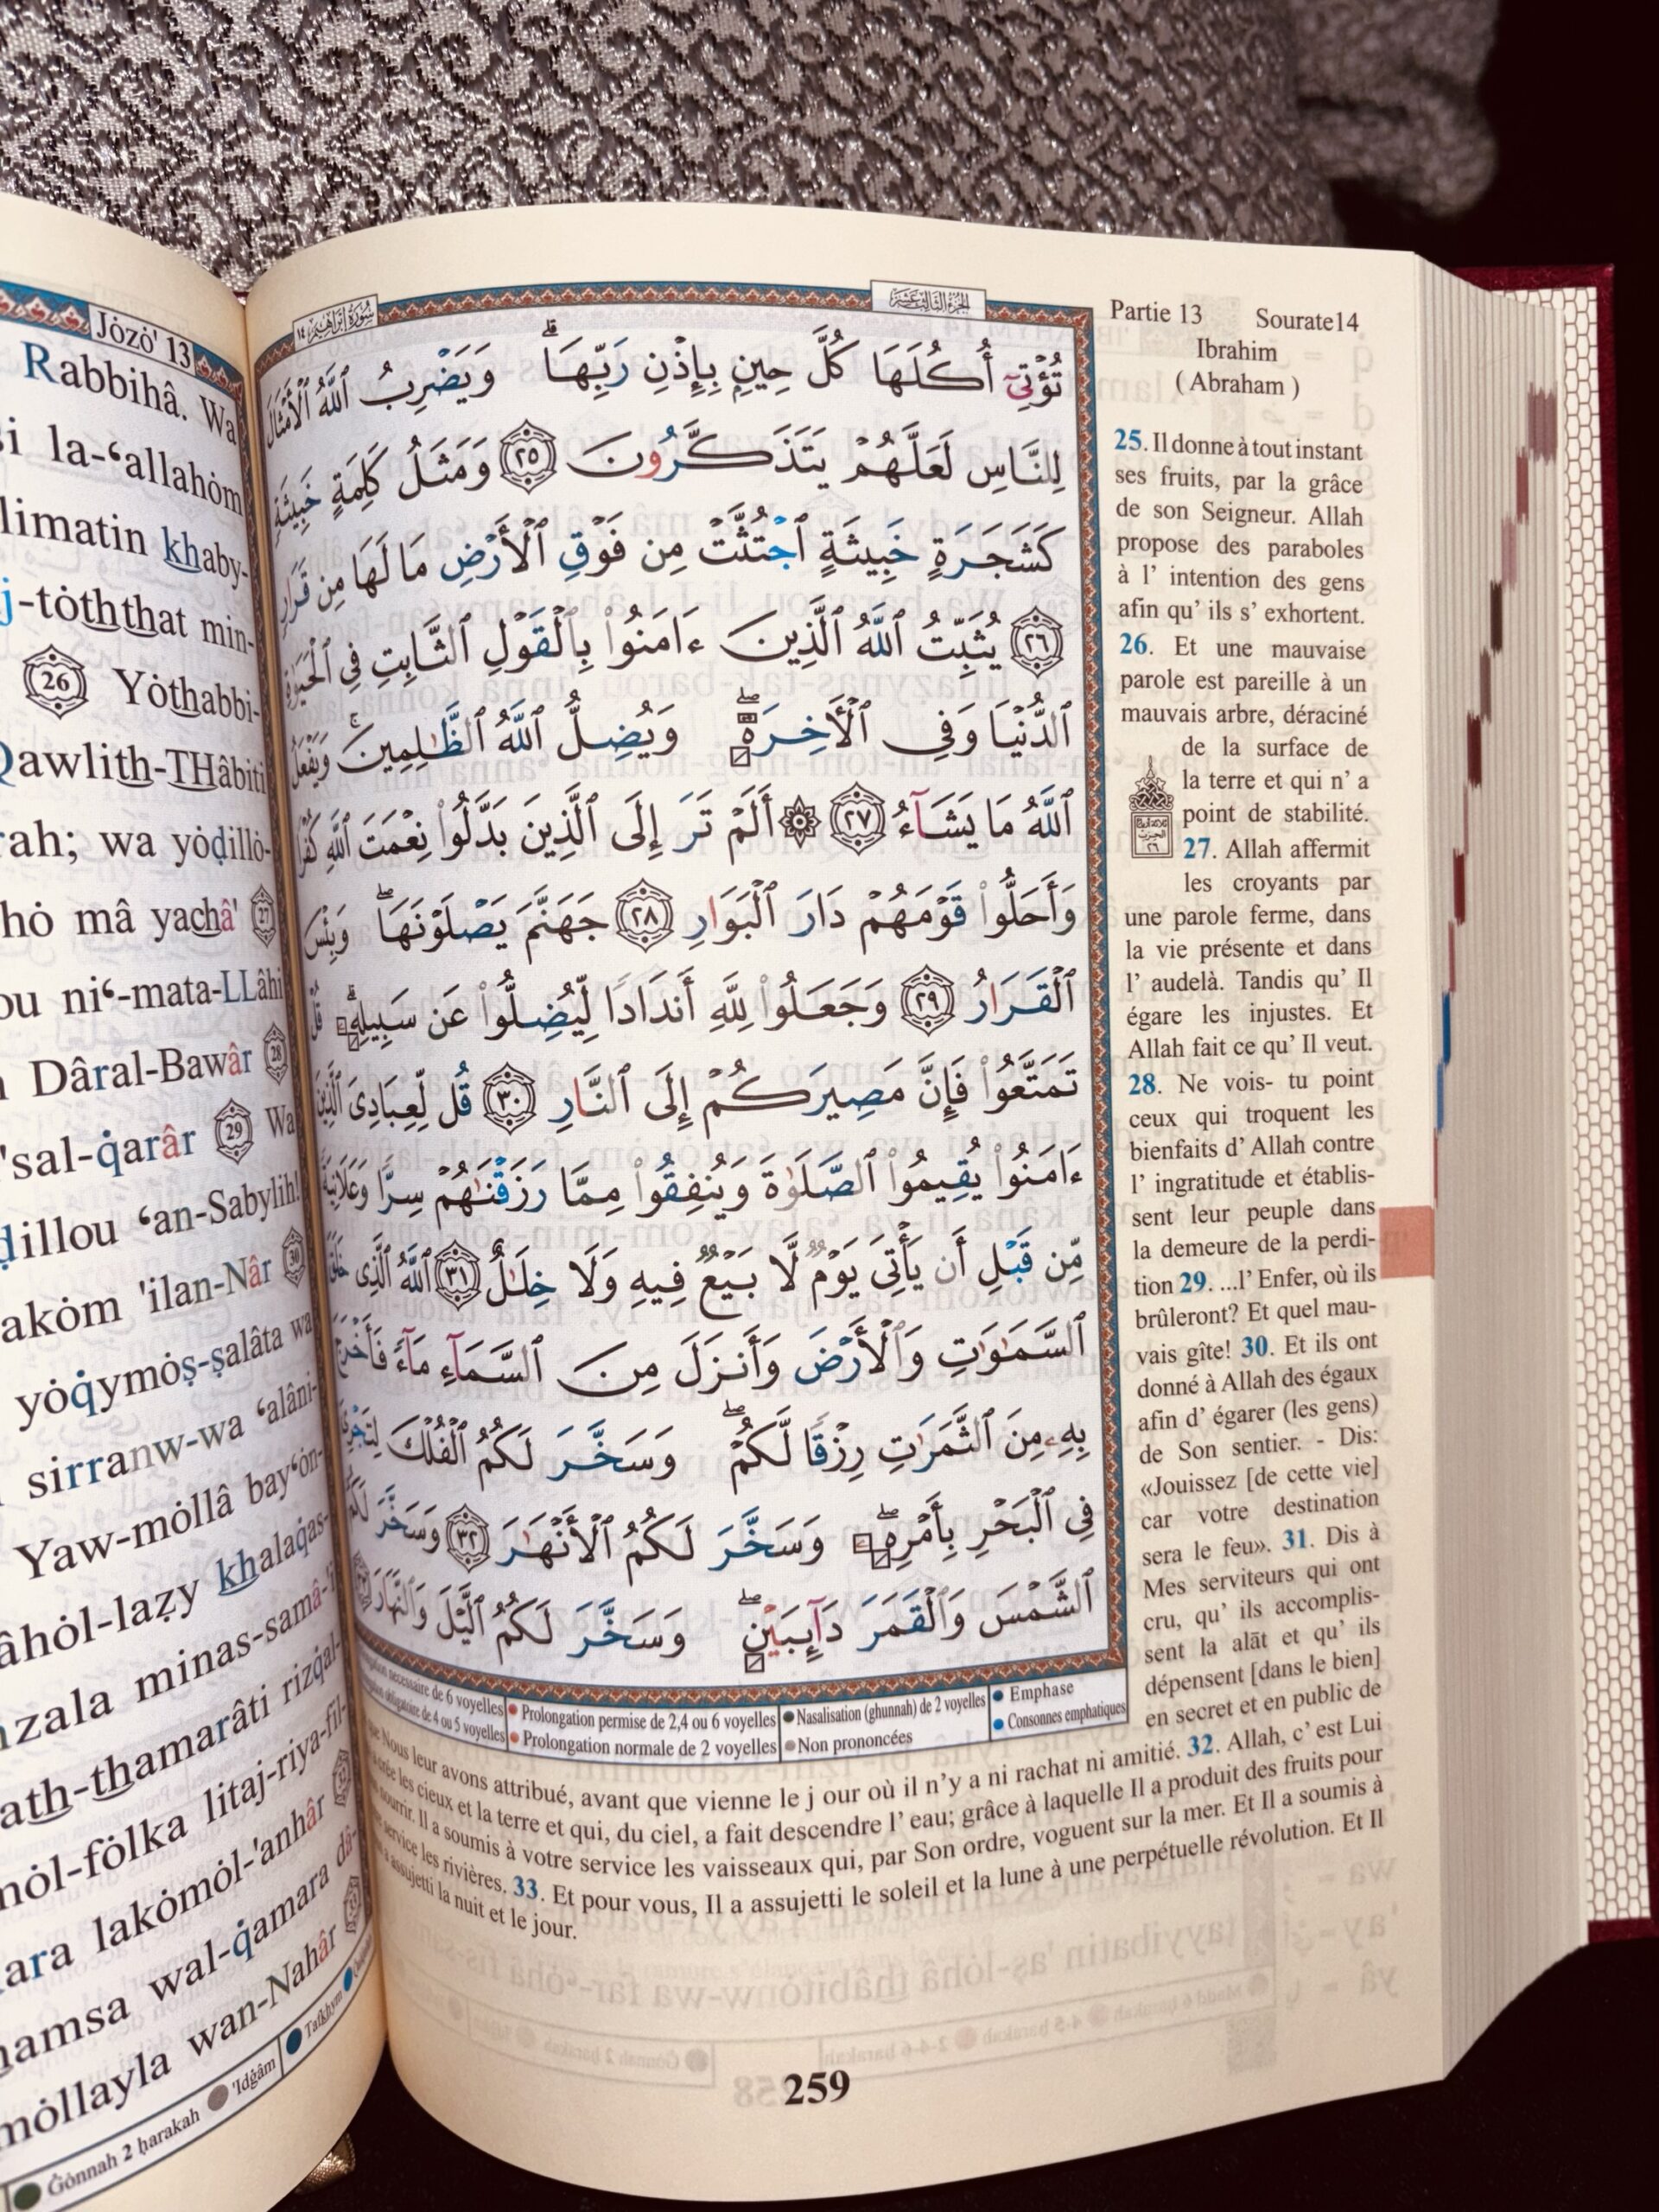 Jȯzȯ' 13
Rabbihâ. Wa
la-‘allahȯm
limatin khaby-
j-tȯththat min-
26 Yȯthabbi-
Qawlith-THâbiti
rah; wa yȯḍillȯ-
hȯ mâ yachâ' 27
ou ni‘-mata-LLâhi
Dâral-Bawâr 28
'sal-q̇arâr 29 Wa
ḍillou ‘an-Sabylih!
akȯm 'ilan-Nâr 30
yȯq̇ymȯṣ-ṣalâta wa
sirranw-wa ‘alâni-
Yaw-mȯllâ bay‘ȯn-
âhȯl-laẓy khalaq̇as-
nzala minas-samâ-'i
ath-thamarâti rizq̇al-
mȯl-fȯlka litaj-riya-fil-
ara lakȯmȯl-'anhâr
hamsa wal-q̇amara dâ-
mȯllayla wan-Nahâr
Ġȯnnah 2 ḥarakah 'Idġâm Tafkhym
سُورَةُ إِبْرَاهِيم ١٤
الجزء الثالث عشر
تُؤْتِىٓ أُكُلَهَا كُلَّ حِينٍۭ بِإِذْنِ رَبِّهَا ۗ وَيَضْرِبُ ٱللَّهُ ٱلْأَمْثَالَ
لِلنَّاسِ لَعَلَّهُمْ يَتَذَكَّرُونَ ٢٥ وَمَثَلُ كَلِمَةٍ خَبِيثَةٍ
كَشَجَرَةٍ خَبِيثَةٍ ٱجْتُثَّتْ مِن فَوْقِ ٱلْأَرْضِ مَا لَهَا مِن قَرَارٍ
٢٦ يُثَبِّتُ ٱللَّهُ ٱلَّذِينَ ءَامَنُوا۟ بِٱلْقَوْلِ ٱلثَّابِتِ فِى ٱلْحَيَوٰةِ
ٱلدُّنْيَا وَفِى ٱلْأَخِرَةِ ۖ وَيُضِلُّ ٱللَّهُ ٱلظَّٰلِمِينَ ۚ وَيَفْعَلُ
ٱللَّهُ مَا يَشَآءُ ٢٧ ۞ أَلَمْ تَرَ إِلَى ٱلَّذِينَ بَدَّلُوا۟ نِعْمَتَ ٱللَّهِ كُفْرًا
وَأَحَلُّوا۟ قَوْمَهُمْ دَارَ ٱلْبَوَارِ ٢٨ جَهَنَّمَ يَصْلَوْنَهَا ۖ وَبِئْسَ
ٱلْقَرَارُ ٢٩ وَجَعَلُوا۟ لِلَّهِ أَندَادًا لِّيُضِلُّوا۟ عَن سَبِيلِهِ ۗ قُلْ
تَمَتَّعُوا۟ فَإِنَّ مَصِيرَكُمْ إِلَى ٱلنَّارِ ٣٠ قُل لِّعِبَادِىَ ٱلَّذِينَ
ءَامَنُوا۟ يُقِيمُوا۟ ٱلصَّلَوٰةَ وَيُنفِقُوا۟ مِمَّا رَزَقْنَٰهُمْ سِرًّا وَعَلَانِيَةً
مِّن قَبْلِ أَن يَأْتِىَ يَوْمٌ لَّا بَيْعٌ فِيهِ وَلَا خِلَٰلٌ ٣١ ٱللَّهُ ٱلَّذِى خَلَقَ
ٱلسَّمَٰوَٰتِ وَٱلْأَرْضَ وَأَنزَلَ مِنَ ٱلسَّمَآءِ مَآءً فَأَخْرَجَ
بِهِۦ مِنَ ٱلثَّمَرَٰتِ رِزْقًا لَّكُمْ ۖ وَسَخَّرَ لَكُمُ ٱلْفُلْكَ لِتَجْرِىَ
فِى ٱلْبَحْرِ بِأَمْرِهِ ۖ وَسَخَّرَ لَكُمُ ٱلْأَنْهَٰرَ ٣٢ وَسَخَّرَ لَكُمُ
ٱلشَّمْسَ وَٱلْقَمَرَ دَآئِبَيْنِ ۖ وَسَخَّرَ لَكُمُ ٱلَّيْلَ وَٱلنَّهَارَ
Partie 13 Sourate14
Ibrahim
( Abraham )
25. Il donne à tout instant
ses fruits, par la grâce
de son Seigneur. Allah
propose des paraboles
à l' intention des gens
afin qu' ils s' exhortent.
26. Et une mauvaise
parole est pareille à un
mauvais arbre, déraciné
de la surface de
la terre et qui n' a
point de stabilité.
27. Allah affermit
les croyants par
une parole ferme, dans
la vie présente et dans
l' audelà. Tandis qu' Il
égare les injustes. Et
Allah fait ce qu' Il veut.
28. Ne vois- tu point
ceux qui troquent les
bienfaits d' Allah contre
l' ingratitude et établis-
sent leur peuple dans
la demeure de la perdi-
tion 29. ...l' Enfer, où ils
brûleront? Et quel mau-
vais gîte! 30. Et ils ont
donné à Allah des égaux
afin d' égarer (les gens)
de Son sentier. - Dis:
«Jouissez [de cette vie]
car votre destination
sera le feu». 31. Dis à
Mes serviteurs qui ont
cru, qu' ils accomplis-
sent la alāt et qu' ils
dépensent [dans le bien]
en secret et en public de
nécessaire de 6 voyelles Prolongation permise de 2,4 ou 6 voyelles Nasalisation (ghunnah) de 2 voyelles Emphase
obligatoire de 4 ou 5 voyelles Prolongation normale de 2 voyelles Non prononcées Consonnes emphatiques
Nous leur avons attribué, avant que vienne le j our où il n'y a ni rachat ni amitié. 32. Allah, c' est Lui
les cieux et la terre et qui, du ciel, a fait descendre l' eau; grâce à laquelle Il a produit des fruits pour
nourrir. Il a soumis à votre service les vaisseaux qui, par Son ordre, voguent sur la mer. Et Il a soumis à
service les rivières. 33. Et pour vous, Il a assujetti le soleil et la lune à une perpétuelle révolution. Et Il
assujetti la nuit et le jour.
259